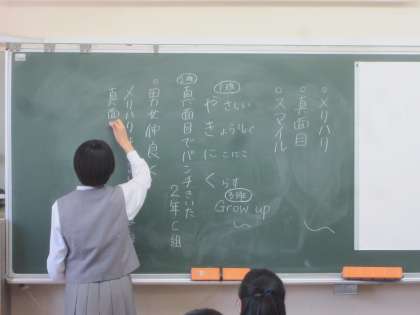 ○メリハリ
○真面目
○スマイル
1班
やさしい
きょうりょく
にこにこ
くらす
3班
Grow up
真面目でパンチきいた
2年C組
○男女仲良く
メリハリ
真面